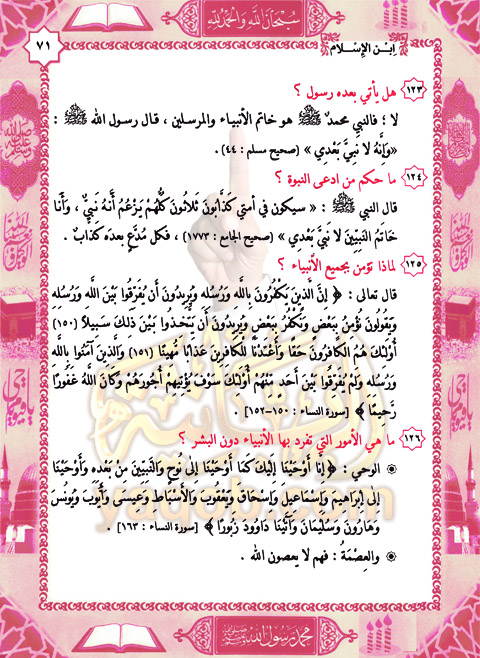 سُبْحَانَ اللهِ وَالحَمْدُ لله
ابْن الإِسْلام
٧١
١٢٣ هل يأتي بعده رسول ؟
لا ؛ فالنبي محمدٌ ﷺ هو خاتم الأنبياء والمرسلين ، قال رسول الله ﷺ :
«وَإِنَّهُ لا نبيَّ بَعْدِي » (صحيح مسلم : ٤٤) .
١٢٤ ما حكم من ادعى النبوة ؟
قال النبي ﷺ : « سيكون في أمتي كَذَّابُونَ ثَلاثُونَ كلُّهُمْ يَزْعُمُ أَنَّهُ نَبيٌّ ، وَأَنَا
خَاتَمُ النَبِيِّينَ لا نَبيَّ بَعْدِي » (صحيح الجامع : ١٧٧٣) ، فكل مدعٍ بعدَه كذابٌ .
١٢٥ لماذا نؤمن بجميع الأنبياء ؟
قال تعالى : ﴿ إِنَّ الَّذِينَ يَكْفُرُونَ بِاللَّهِ وَرُسُلِهِ وَيُرِيدُونَ أَن يُفَرِّقُوا بَيْنَ اللَّهِ وَرُسُلِهِ
وَيَقُولُونَ نُؤْمِنُ بِبَعْضٍ وَنَكْفُرُ بِبَعْضٍ وَيُرِيدُونَ أَن يَتَّخِذُوا بَيْنَ ذَلِكَ سَبِيلاً (١٥٠)
أُوْلَئِكَ هُمُ الْكَافِرُونَ حَقًّا وَأَعْتَدْنَا لِلْكَافِرِينَ عَذَابًا مُّهِينًا (١٥١) وَالَّذِينَ آمَنُوا بِاللَّهِ
وَرُسُلِهِ وَلَمْ يُفَرِّقُوا بَيْنَ أَحَدٍ مِّنْهُمْ أُوْلَئِكَ سَوْفَ يُؤْتِيهِمْ أُجُورَهُمْ وَكَانَ اللَّهُ غَفُورًا
رَّحِيمًا ﴾ [سورة النساء : ١٥٠-١٥٢] .
١٢٦ ما هي الأمور التي تفرد بها الأنبياء دون البشر ؟
الوحي : ﴿إِنَّا أَوْحَيْنَا إِلَيْكَ كَمَا أَوْحَيْنَا إِلَى نُوحٍ وَالنَّبِيِّينَ مِنْ بَعْدِهِ وَأَوْحَيْنَا
إِلَى إِبْرَاهِيمَ وَإِسْمَاعِيلَ وَإِسْحَاقَ وَيَعْقُوبَ وَالأَسْبَاطِ وَعِيسَى وَأَيُّوبَ وَيُونُسَ
وَهَارُونَ وَسُلَيْمَانَ وَآتَيْنَا دَاوُودَ زَبُورًا ﴾ [سورة النساء : ١٦٣] .
والعِصْمَةُ : فهم لا يعصون الله .
محمد رسول الله ﷺ